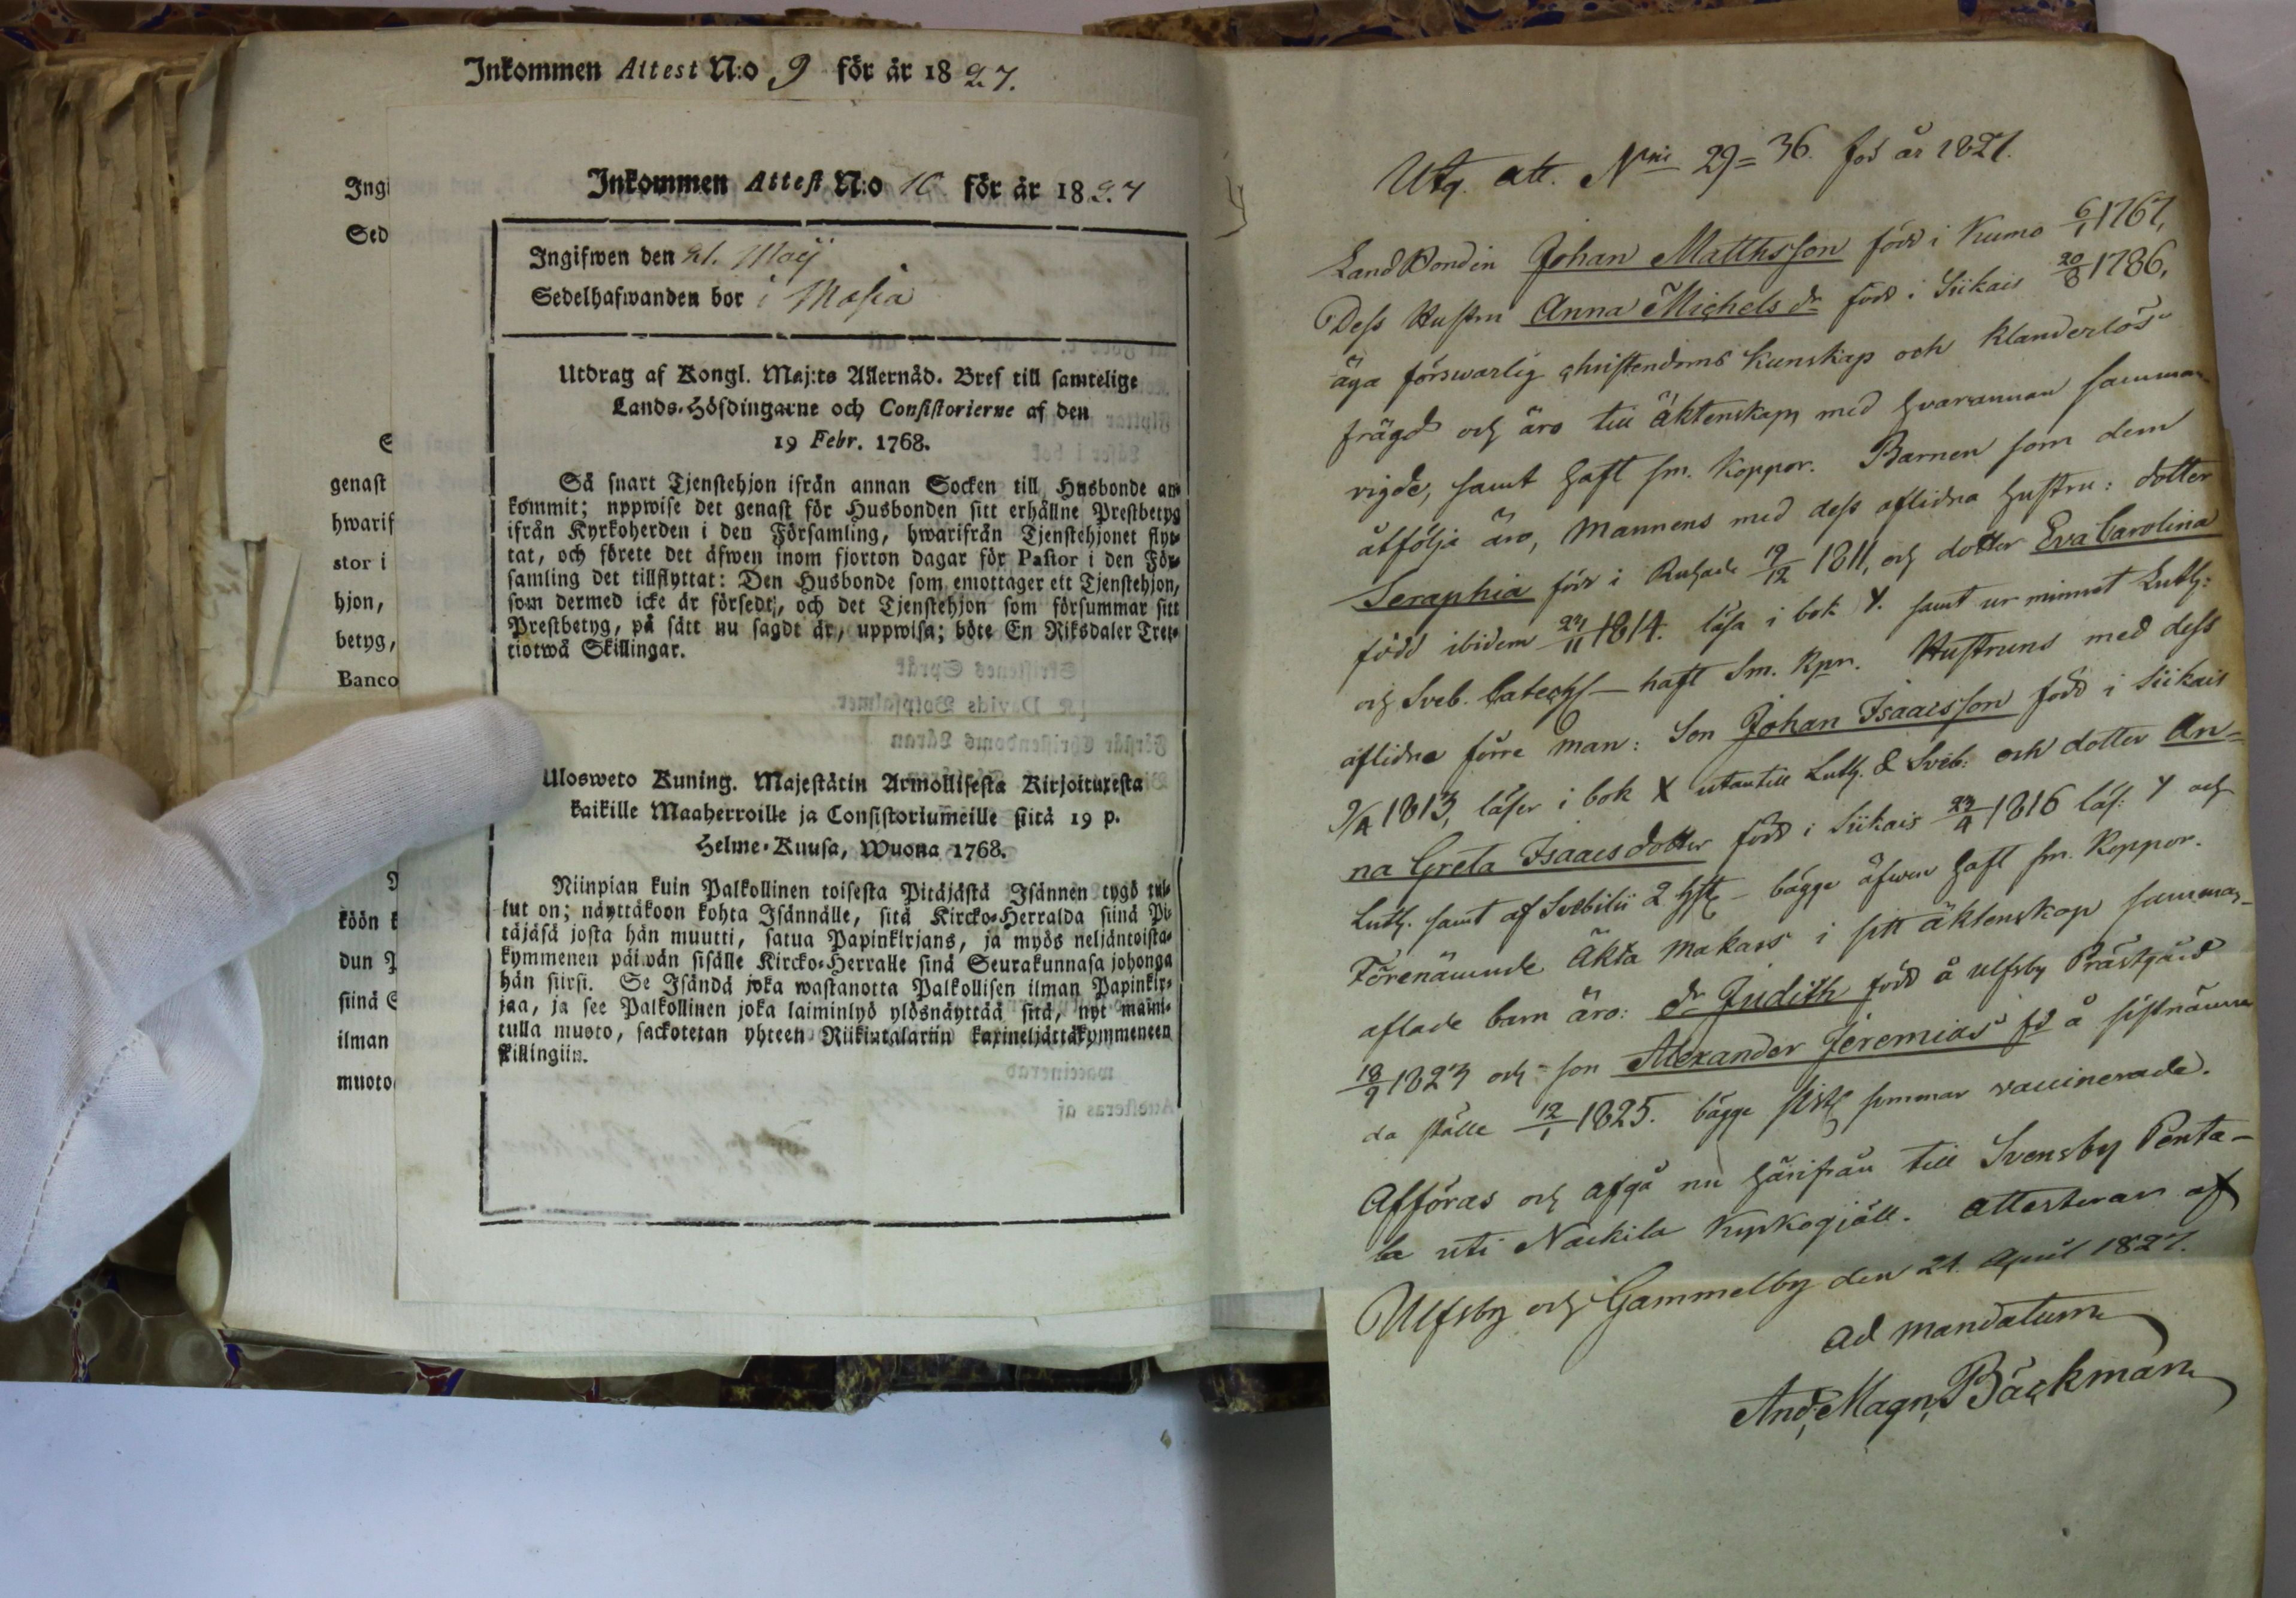 Inkommen Attest N:o 9 för år 1827.
Inkommen Attest N:o 10 för år 1827
Ingi
Sed
genast
hwarif
stor i
hjon,
betyg,
Banco
köön k
dun P
siinä S
ilman
muoto
Ingifwen den 21. Maij
Sedelhafwanden bor i
Utdrag af Kongl. Maj:ts Allernåd. Bref till samtelige
Lands-Höfdingarne och Consistorierne af den
19 Febr. 1768.
Så snart Tjenstehjon ifrån annan Socken till Husbonde an-
kommit; uppwise det genast för Husbonden sitt erhållne Prestbetyg
ifrån Kyrkoherden i den Församling, hwarifrån Tjenstehjonet flyt-
tat, och förete det äfwen inom fjorton dagar för Pastor i den För-
samling det tillflyttat: Den Husbonde som emottager ett Tjenstehjon,
som dermed icke är försedt, och det Tjenstehjon som försummar sitt
Prestbetyg, på sätt nu sagdt är, uppwisa; böte En Riksdaler Tret-
tiotwå Skillingar.
Ulosweto Kuning. Majestätin Armollisesta Kirjoituxesta
kaikille Maaherroille ja Consistoriumeille siitä 19 p.
Helme-Kuusa, Wuona 1768.
Niinpian kuin Palkollinen toisesta Pitäjästä Isännen tygö tul-
lut on; näyttäkoon kohta Isännälle, sitä Kircko-Herralda siinä Pi-
täjäsä josta hän muutti, saatua Papinkirjans, ja myös neljäntoista-
kymmenen päiwän sisälle Kircko-Herralle siinä Seurakunnasa johonga
hän siirsi. Se Isändä joka wastanotta Palkollisen ilman Papinkir-
jaa, ja see Palkollinen joka laiminlyö ylösnäyttää sitä, nyt maini-
tulla muoto, sackotetan yhteen Riikintalariin kaxineljättäkymmeneen
skillingiin.
Utg. att. Nris 29=36. för år 1827.
LandBonden Johan Matthsson född i Kumo 6/1 1767,
Dess Hustru Anna Michels dr född i Siikais 20/8 1786,
äga förswarlig christendoms kunskap och klanderlös
frägd och äro till äktenskap med hvarannan samman-
vigde, samt haft sm. koppor. Barnen som dem
åtfölja äro, Mannens med dess aflidna hustru: dotter
Seraphia född i 19/12 1811, och dotter Eva Carolina
född ibidem 27/11 1814. läsa i bok Y. samt ur minnet Luth:
och Sveb. Cateches – haft Sm. kpr. Hustruns med dess
aflidne förre man: Son Johan Isaacsson född i Siikais
9/4 1813, läser i bok X utantill Luth. & Sveb: och dotter An=
na Greta Isaacsdotter född i Siikais 23/4 1816 läs: Y och
Luth. samt af Svebilii 2 – bägge äfwen haft sm. koppor.
Förenämnde Äkta Makars i sitt äktenskap samman-
aflade barn äro: dr Judith född å Ulfsby Prästgård
18/9 1823 och son Alexander Jeremias fd å sistnämn
da ställe 12/1 1825. bägge sistl. sommar vaccinerade.
Afföras och afgå nu härifrån till Svensby Penta-
la uti Nackila Kyrkogjäll. Attesteras af
Ulfsby och Gammelby den 21 April 1827.
Ad mandatum
And. Magn. Bäckman